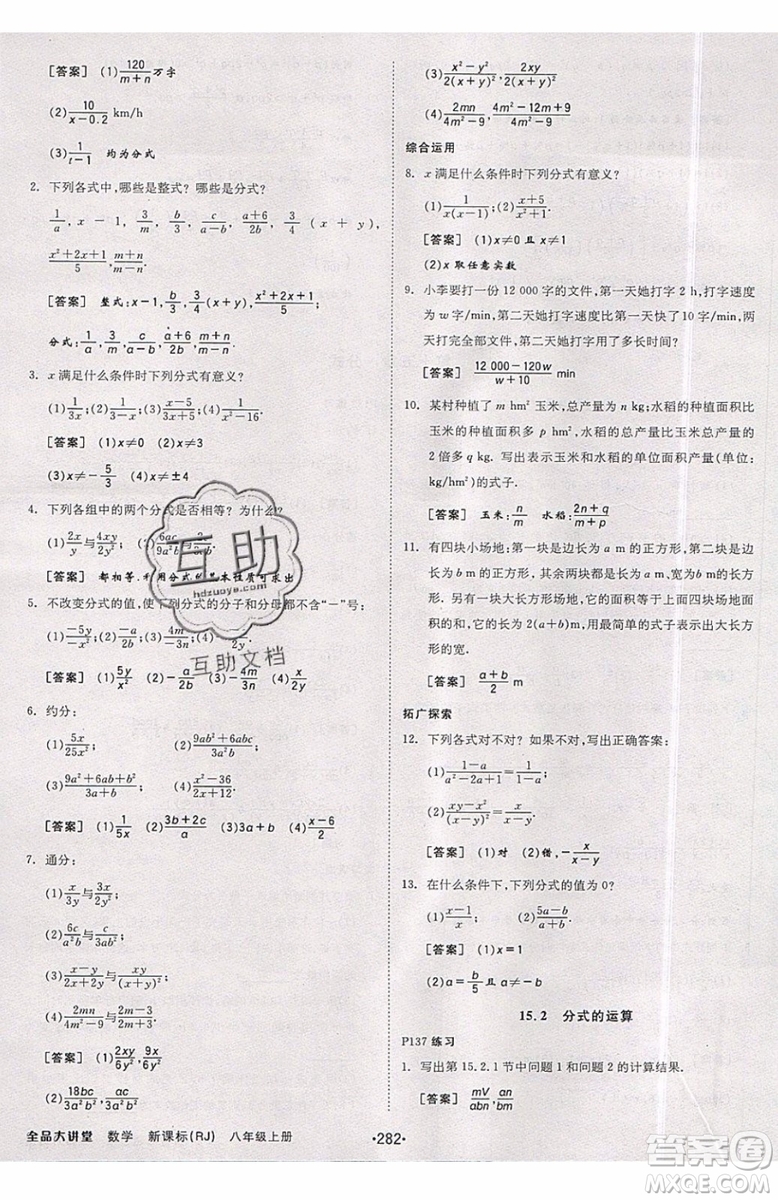 [答案] (1) 120/(m+n) 万字
(2) 10/(x-0.2) km/h
(3) 1/(r-1) 均为分式
2. 下列各式中,哪些是整式? 哪些是分式?
1/a, x-1, 3/m, b/3, c/(a-b), (a+6)/(2b), 3/4 (x+y),
(x²+2x+1)/5, (m+n)/(m-n).
[答案] 整式: x-1, b/3, 3/4(x+y), (x²+2x+1)/5
分式: 1/a, 3/m, c/(a-b), (a+6)/(2b), (m+n)/(m-n)
3. x满足什么条件时下列分式有意义?
(1) 1/(3x); (2) 1/(3-x); (3) (x-5)/(3x+5); (4) 1/(x²-16).
[答案] (1)x≠0 (2)x≠3
(3)x≠-5/3 (4)x≠±4
4. 下列各组中的两个分式是否相等? 为什么?
(1) 2x/(3y)与4xy/(6y²); (2) 6ac/(9a²b)与
[答案] 都相等.利用分式的基本性质可求出
5. 不改变分式的值,使下列分式的分子和分母都不含“-”号:
(1) -5y/-x²; (2) 与 (3) 4m/ (4)
[答案] (1) 5y/x² (2) (3)-4m/(3n) (4)-x/(2y)
6. 约分:
(1) 5x/(25x²); (2) (9ab²+6abc)/(3a²b);
(3) (9a²+6ab+b²)/(3a+b); (4) (x²-36)/(2x+12).
[答案] (1) 1/(5x) (2) (3b+2c)/a (3)3a+b (4) (x-6)/2
7. 通分:
(1) x/(3y)与3x/(2y²);
(2) 6c/(a²b)与c/(3ab²);
(3) (x-y)/(2x+2y)与xy/(x+y)²;
(4) 2mn/(4m²-9)与(2m-3)/(2m+3).
[答案] (1) 2xy/(6y²), 9x/(6y²)
(2) 18bc/(3a²b²), ac/(3a²b²)
全品大讲堂 数学 新课标(RJ) 八年级上册
(3) (x²-y²)/(2(x+y)²), 2xy/(2(x+y)²)
(4) 2mn/(4m²-9), (4m²-12m+9)/(4m²-9)
综合运用
8. x满足什么条件时下列分式有意义?
(1) 1/(x(x-1)); (2) (x+5)/(x²+1).
[答案] (1)x≠0且x≠1
(2)x取任意实数
9. 小李要打一份12 000字的文件,第一天她打字2 h,打字速度
为w字/min,第二天她打字速度比第一天快了10字/min,两
天打完全部文件,第二天她打字用了多长时间?
[答案] (12 000-120w)/(w+10) min
10. 某村种植了m hm²玉米,总产量为n kg;水稻的种植面积比
玉米的种植面积多p hm²,水稻的总产量比玉米总产量的
2倍多q kg. 写出玉米和水稻的单位面积产量(单位:
kg/hm²)的式子.
[答案] 玉米: n/m 水稻: (2n+q)/(m+p)
11. 有四块小场地:第一块是边长为a m的正方形,第二块是边
长为b m的正方形,其余两块都是长为a m,宽为b m的长
方形. 另有一块大长方形场地,它的面积等于上面四块场地
面积的和,它的长为2(a+b)m,用最简单的式子表示出大长
方形的宽.
[答案] (a+b)/2 m
拓广探索
12. 下列各式对不对? 如果不对,写出正确答案:
(1) (a-1)/(a²-2a+1)=1/(a-1);
(2) (xy-x²)/(x-y)²=x/(x-y).
[答案] (1)对 (2)错,-x/(x-y)
13. 在什么条件下,下列分式的值为0?
(1) (x-1)/x; (2) (5a-b)/(a+b).
[答案] (1)x=1
(2)a=b/5且a≠-b
15.2 分式的运算
P137 练习
1. 写出第15.2.1节中问题1和问题2的计算结果.
[答案] mV/(abn), an/(bm)
·282·
互助
hdzuoye.com
互助文档
作业精灵
MXQE.COM